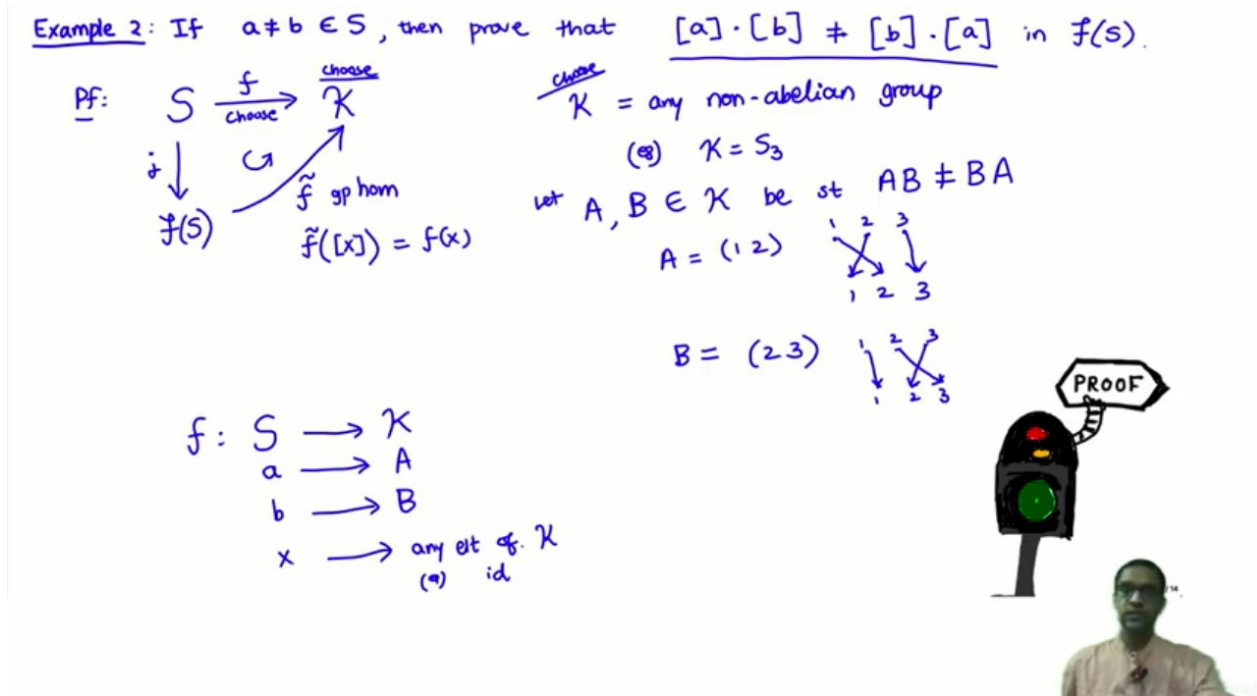 Example 2: If a ≠ b ∈ S, then prove that [a]·[b] ≠ [b]·[a] in F(S).
Pf: S f choose K choose
j
F(S)
f̃ gp hom
f̃([x]) = f(x)
choose
K = any non-abelian group
(eg) K = S₃
Let A, B ∈ K be st AB ≠ BA
A = (1 2)
1 2 3
1 2 3
B = (2 3)
1 2 3
1 2 3
f: S → K
a → A
b → B
x → any elt of K
id
PROOF